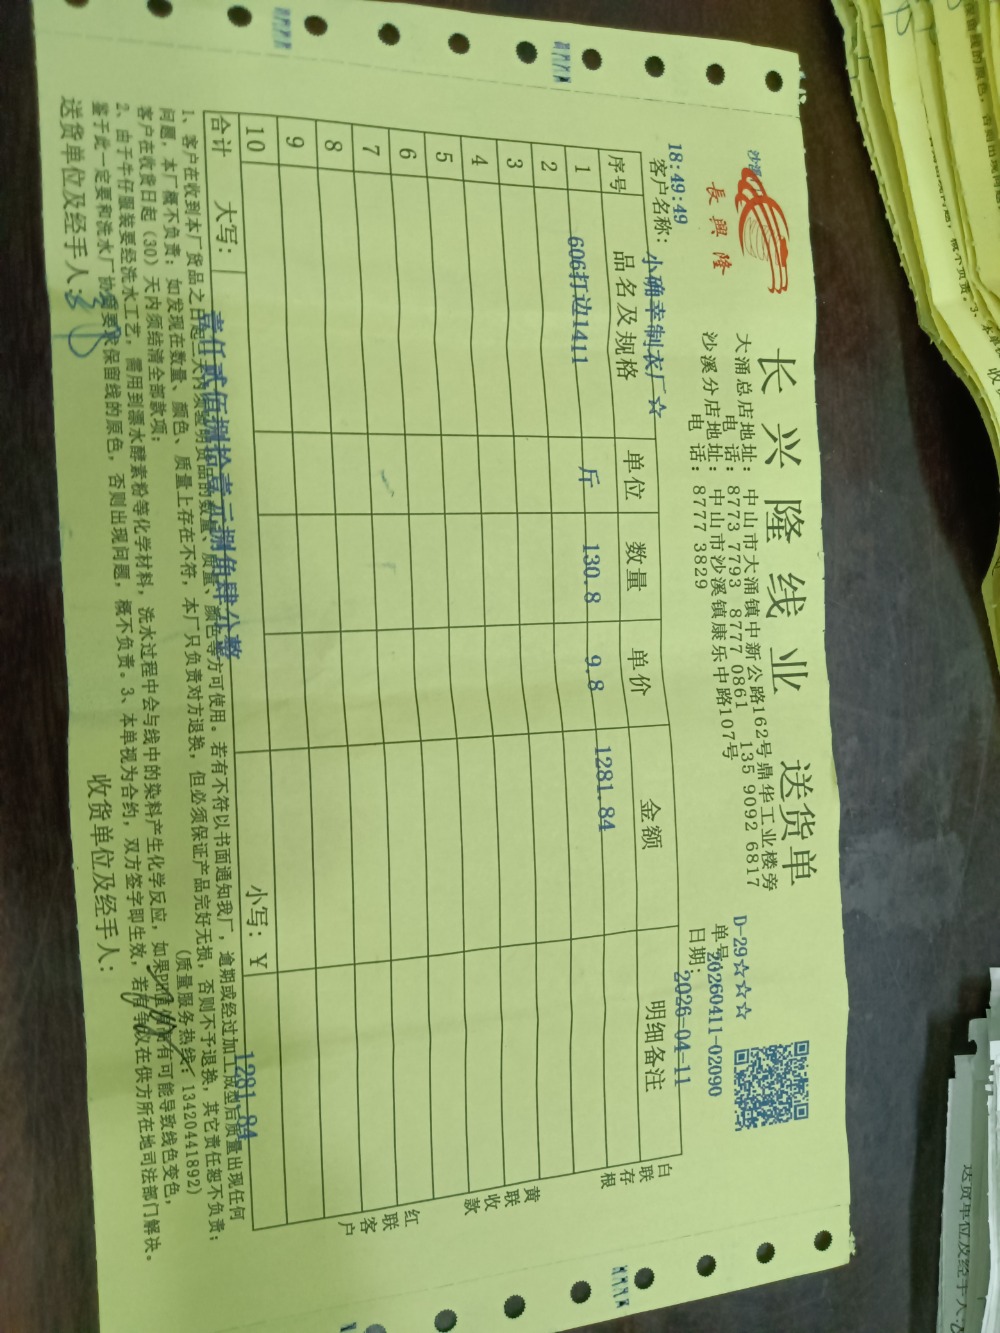 長興隆
长兴隆线业 送货单
大涌总店地址：中山市大涌镇中新公路162号鼎华工业楼旁
电话：8773 7793 8777 0861 135 9092 6817
沙溪分店地址：中山市沙溪镇康乐中路107号
电话：8777 3829
D-29☆☆☆
单号：20260411-02090
日期：2026-04-11
18:49:49
客户名称：小确幸制衣厂☆
序号 品名及规格 单位 数量 单价 金额 明细备注
1 606打边1411 斤 130.8 9.8 1281.84
2
3
4
5
6
7
8
9
10
合计 大写：壹仟贰佰捌拾壹元捌角肆分整 小写：￥1281.84
白联存根
黄联收款
红联客户
1、客户在收到本厂货品之日起三天内须验明货品的数量、质量、颜色等方可使用。若有不符以书面通知我厂，逾期或经过加工成型后质量出现任何
问题，本厂概不负责；如发现在数量、颜色、质量上存在不符，本厂只负责对方退换，但必须保证产品完好无损，否则不予退换，其它责任恕不负责；
客户在收货日起（30）天内须结清全部款项； （质量服务热线：13420441892）
2、由于牛仔服装要经洗水工艺，需用到漂水酵素粉等化学材料，洗水过程中会与线中的染料产生化学反应，如果PH值偏高有可能导致线色变色，
鉴于此一定要和洗水厂协商要求保留线的原色，否则出现问题，概不负责。3、本单视为合约，双方签字即生效，若有争议在供方所在地司法部门解决。
送货单位及经手人： 收货单位及经手人：
送货单位及经手人：